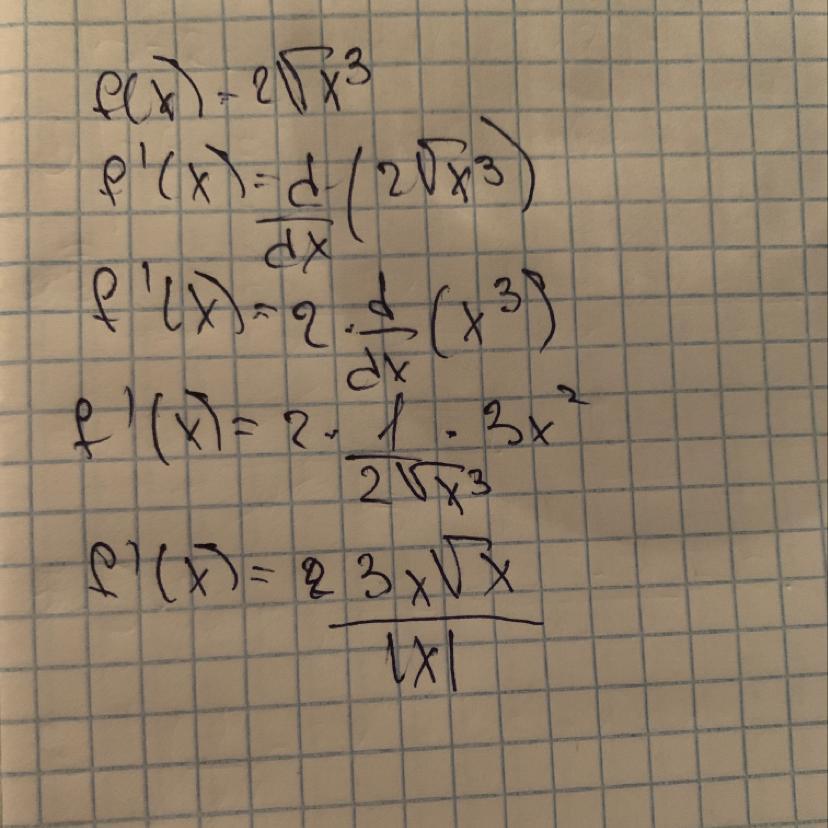 f(x) = 2√x³
f'(x) = d/dx (2√x³)
f'(x) = 2 · d/dx (x³)
f'(x) = 2 · 1/(2√x³) · 3x²
f'(x) = 2 3x√x/|x|